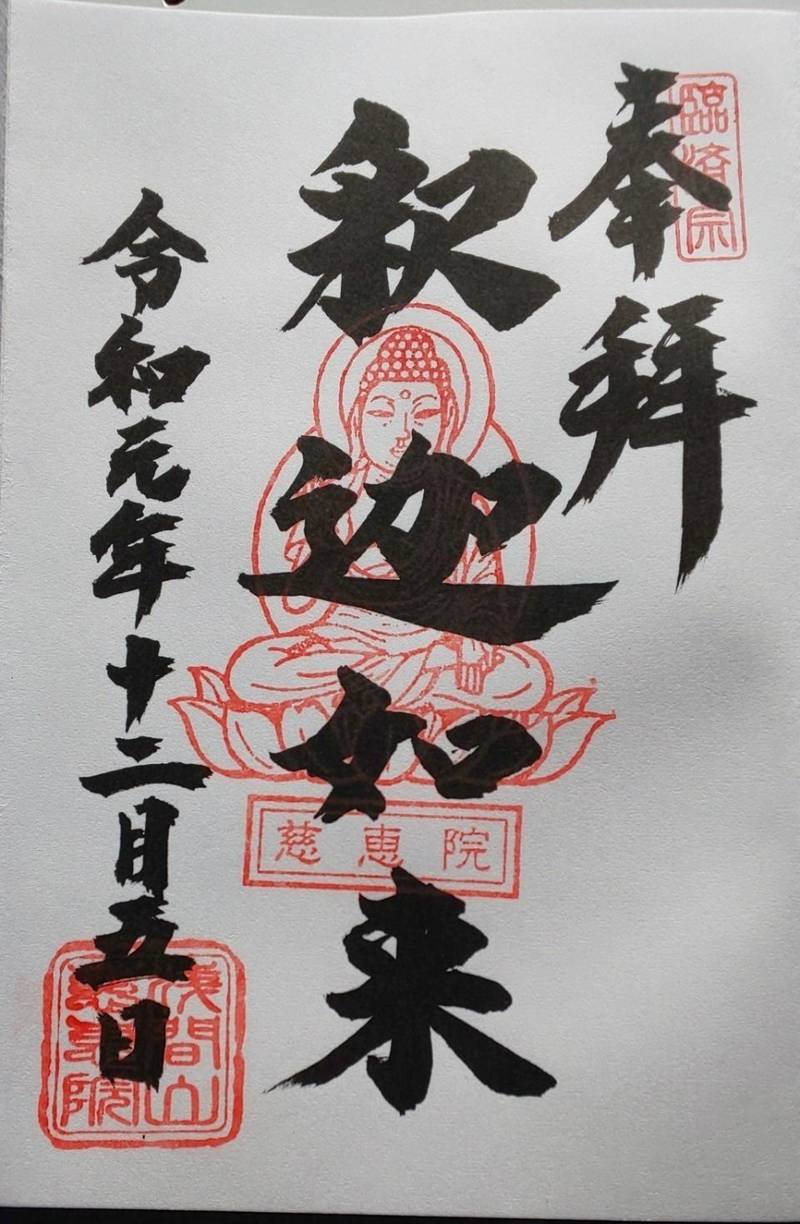 臨済宗
奉拝
釈迦如来
慈恵院
令和元年十二月五日
浅間山
慈恵院